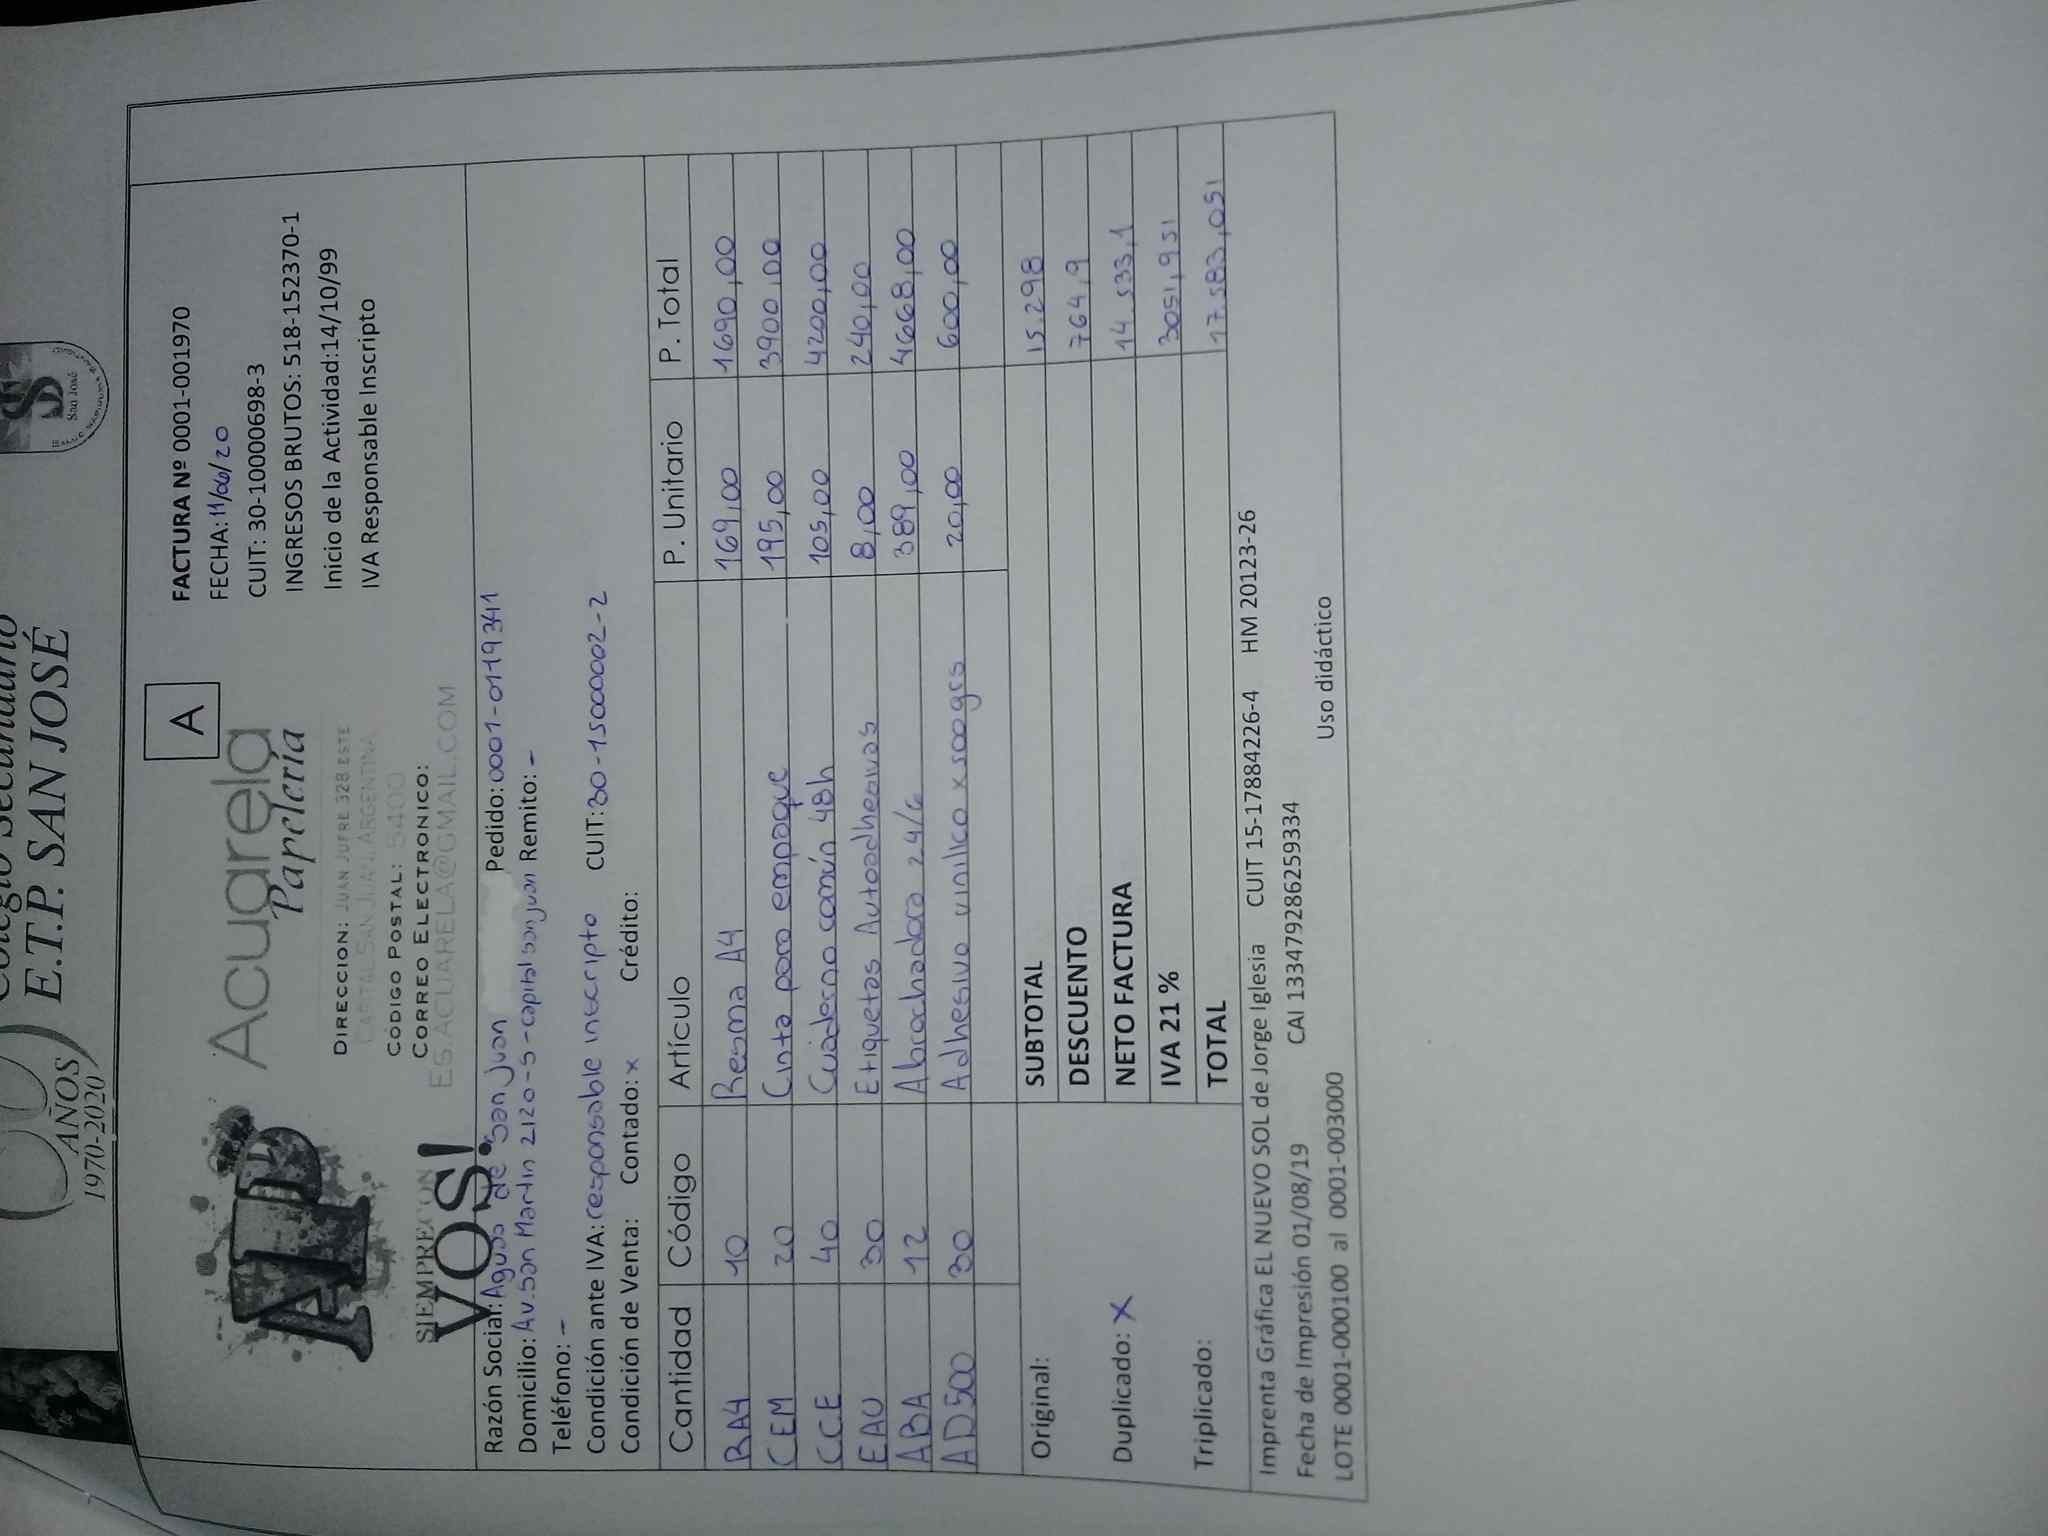 Colegio Secundario
E.T.P. SAN JOSÉ
AÑOS
1970-2020
San José
A
Acuarela
Papelería
SIEMPRE CON
VOS!
DIRECCION: JUAN JUFRE 328 ESTE
CAPITAL SAN JUAN, ARGENTINA
CÓDIGO POSTAL: 5400
CORREO ELECTRONICO:
ES.ACUARELA@GMAIL.COM
FACTURA Nº 0001-001970
FECHA: 11/06/20
CUIT: 30-10000698-3
INGRESOS BRUTOS: 518-152370-1
Inicio de la Actividad:14/10/99
IVA Responsable Inscripto
Razón Social: Aguas de San Juan Pedido: 0001-01193411
Domicilio: Av. San Martin 2120-5-capital san juan Remito: -
Teléfono: -
Condición ante IVA: responsable inscripto CUIT: 30-15000002-2
Condición de Venta: Contado: x Crédito:
Cantidad Código Artículo P. Unitario P. Total
RA4 10 Resma A4 169,00 1690,00
CEM 20 Cinta para empaque 195,00 3900,00
CCE 40 Cuaderno común 48h 105,00 4200,00
EAU 30 Etiquetas Autoadhesivas 8,00 240,00
ABA 12 Abrochadora 24/6 389,00 4668,00
AD500 30 Adhesivo vinilico x 500grs 20,00 600,00
Original: SUBTOTAL 15.298
DESCUENTO 764,9
Duplicado: X NETO FACTURA 14.533,1
IVA 21 % 3051,951
Triplicado: TOTAL 17.583,051
Imprenta Gráfica EL NUEVO SOL de Jorge Iglesia CUIT 15-17884226-4 HM 20123-26
Fecha de Impresión 01/08/19 CAI 13347928625​9334
LOTE 0001-000100 al 0001-003000 Uso didáctico